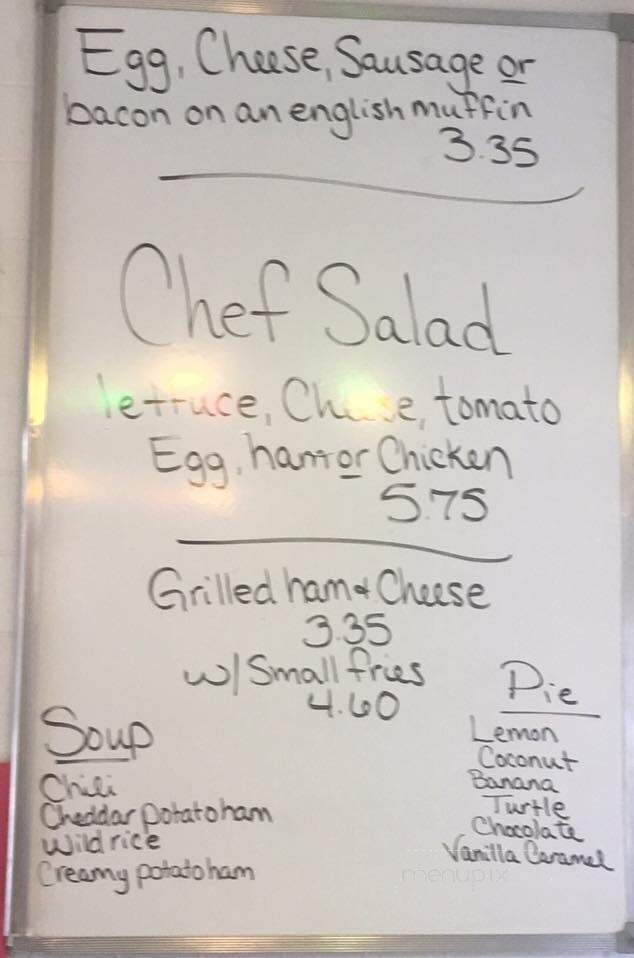 Egg, Cheese, Sausage or
bacon on an english muffin
3.35
Chef Salad
lettuce, Cheese, tomato
Egg, ham or Chicken
5.75
Grilled ham & Cheese
3.35
w/ Small fries
4.60
Soup
Chili
Cheddar potato ham
Wild rice
Creamy potato ham
Pie
Lemon
Coconut
Banana
Turtle
Chocolate
Vanilla Caramel
menupix